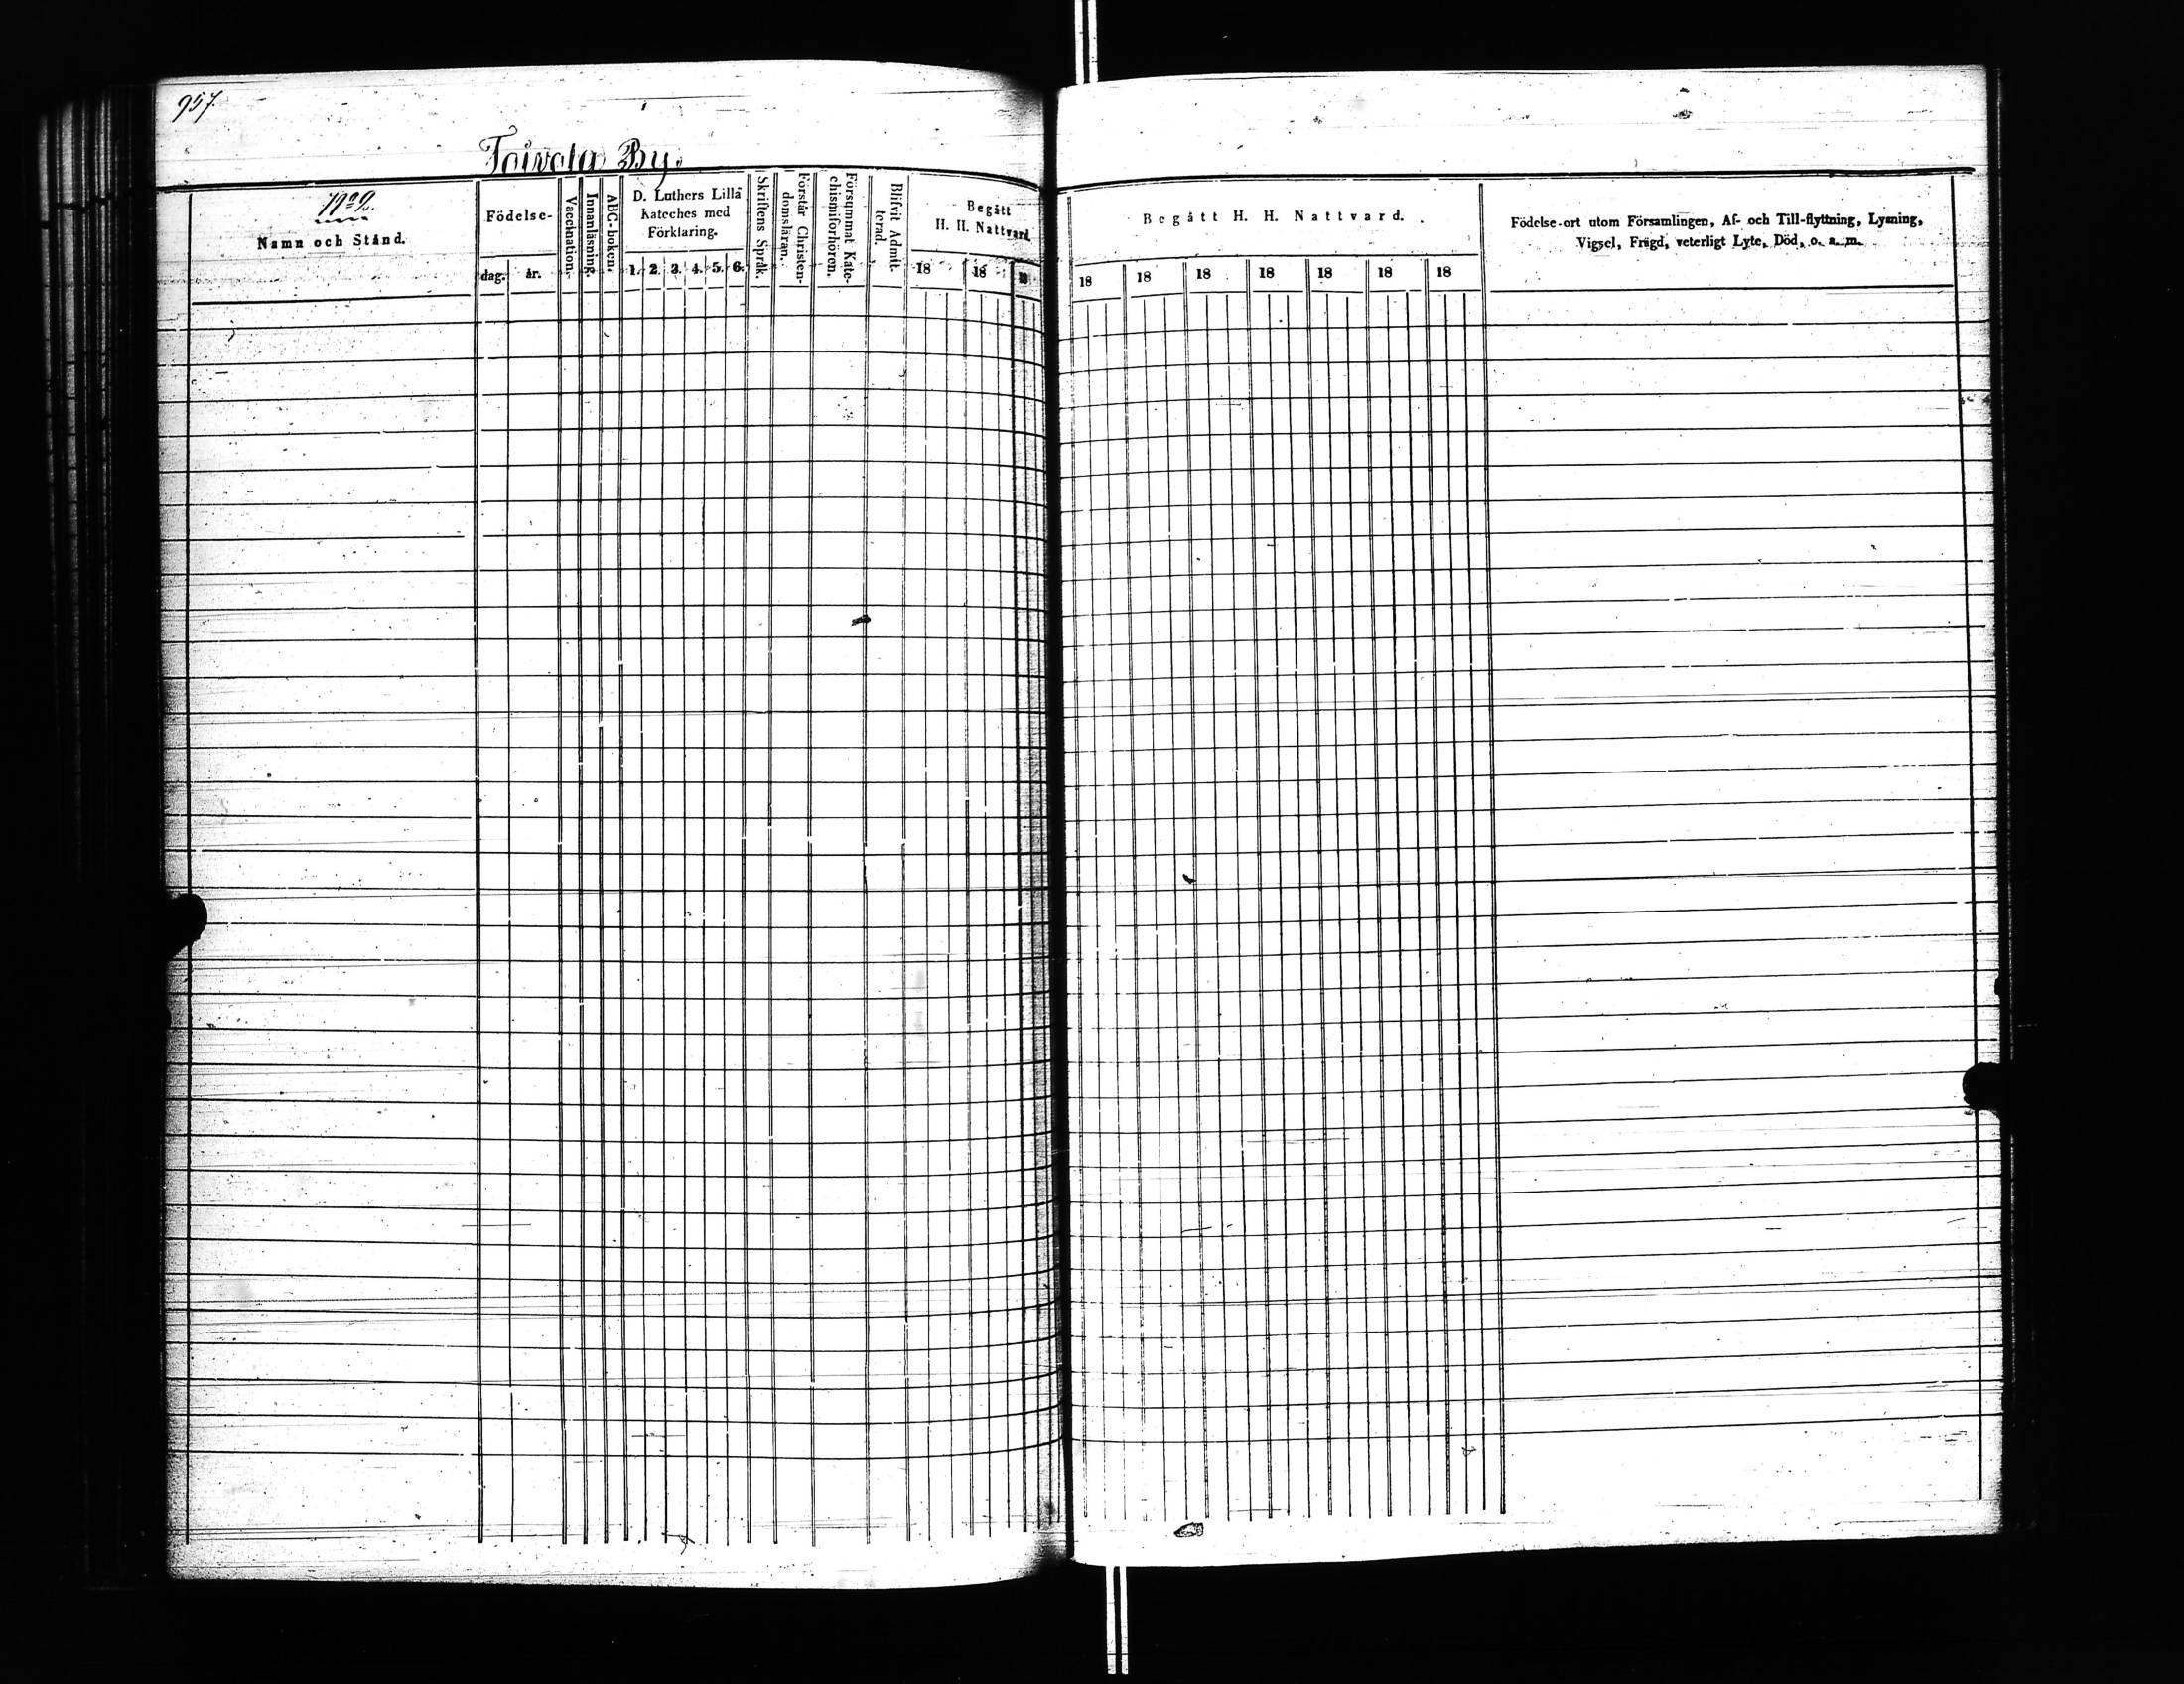 957.
Toivola By.
No 2.
Namn och Stånd.
Födelse-
dag. år.
Vaccination.
Innanläsning.
ABC-boken.
D. Luthers Lilla
Kateches med
Förklaring.
1. 2. 3. 4. 5. 6.
Skriftens Språk.
Förstår Christen-
domsläran.
Försummat Kate-
chismiförhören.
Blifvit Admit-
terad.
Begått
H. H. Nattvard.
18 18 18
Begått H. H. Nattvard.
18 18 18 18 18 18 18
Födelse-ort utom Församlingen, Af- och Till-flyttning, Lysning,
Vigsel, Frägd, veterligt Lyte, Död, o. a. m.